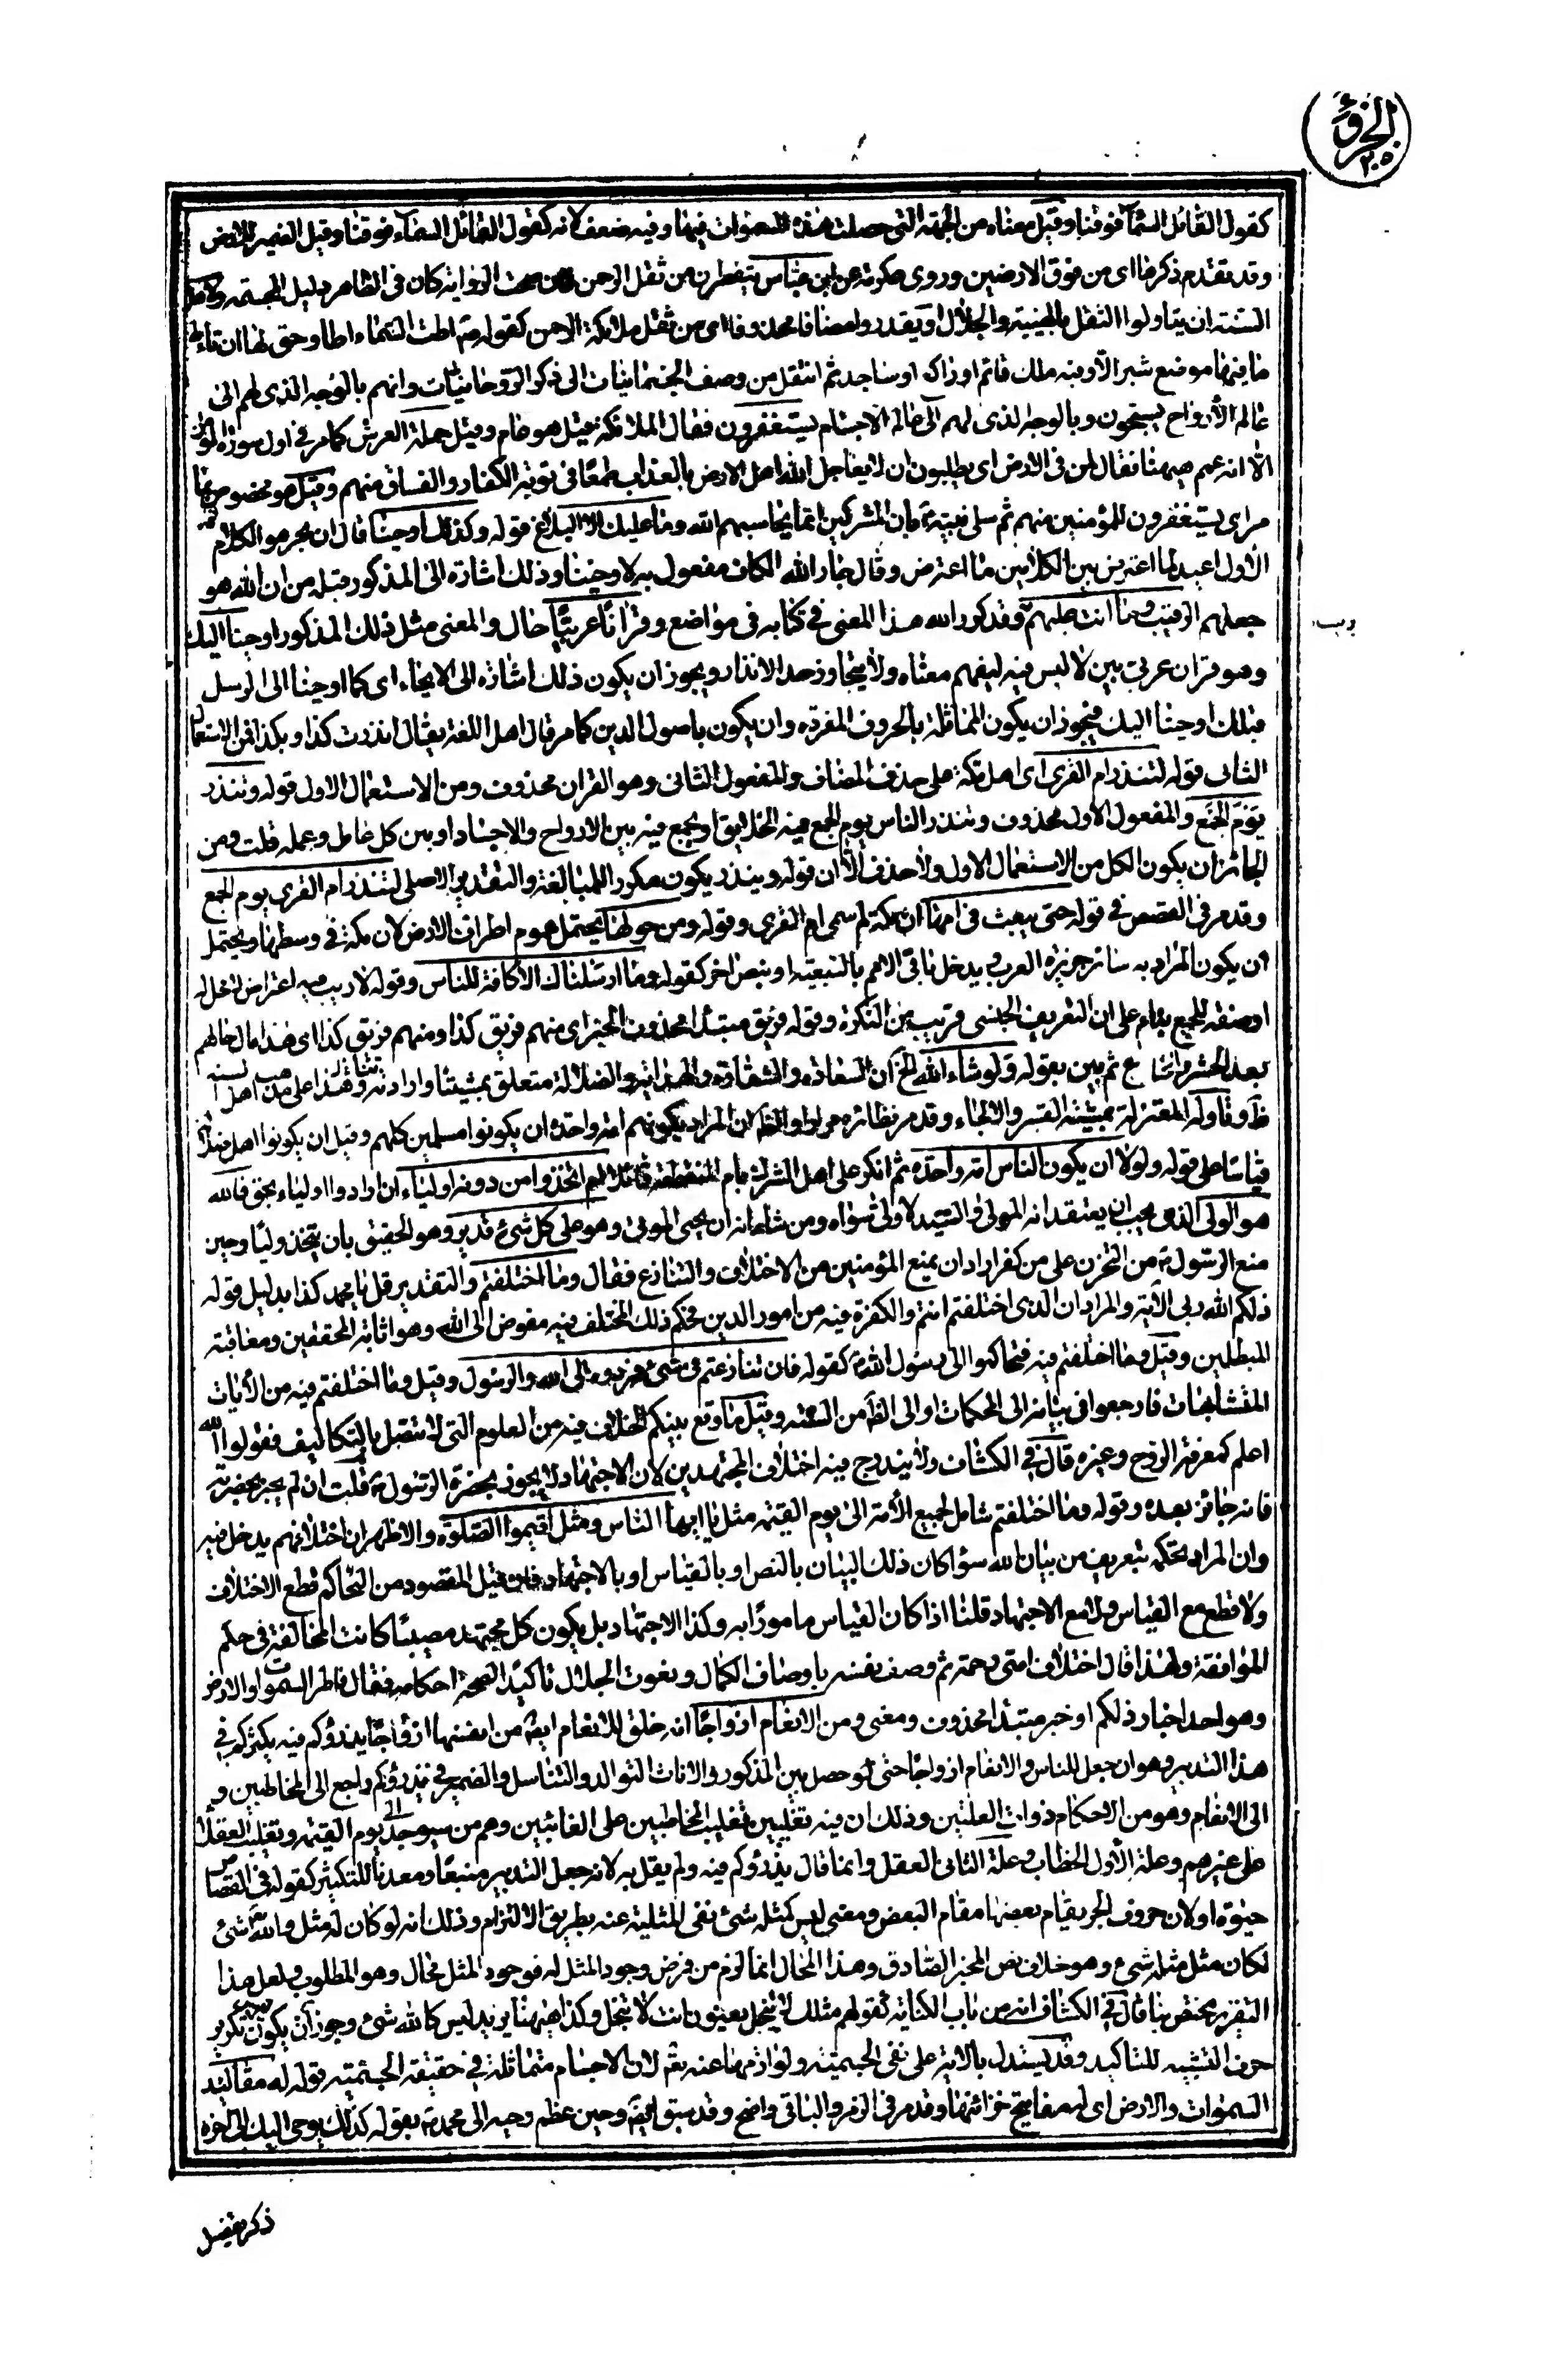 الجزؤ
٢٥
كقول القائل السماء فوقنا وقيل معناه من الجهة التى حصلت هذه السموات فيها وفيه ضعف لانه كقول القائل السماء فوقنا وقيل الضمير للارض
وقد تقدم ذكرها اى من فوق الارضين وروى عكرمة عن ابن عباس يتفطرن من ثقل الرحمن فان صحت الرواية كان فى الظاهر دليل المجسمة
السنة ان يتاولوا الثقل بالهيبة والجلال او يقدروا مضافا محذوفا اى من ثقل ملائكة الرحمن كقوله اطت السماء اطا وحق لها ان تاط
ما فيها موضع شبر الا وفيه ملك قائم او راكع او ساجد ثم انتقل من وصف الجسمانيات الى ذكر الروحانيات وانهم بالوجه الذى لهم الى
عالم الأرواح يسبحون وبالوجه الذى لهم الى عالم الاجسام يستغفرون فقال الملائكة قيل هو عام وقيل حملة العرش كما مر فى اول سورة المؤمن
الا انه عم ههنا فقال لمن فى الارض اى يطلبون ان لا يعاجل الله اهل الارض بالعذاب طمعا فى توبة الكفار والفساق منهم وقيل هو مخصوص بما
مر اى يستغفرون للمؤمنين منهم ثم سلى نبيه بان المشركين انما يحاسبهم الله وما عليك الا البلاغ قوله وكذلك اوحينا قال ان بحر هو الكلام
الأول اعيد لما اعترض بين الكلامين ما اعترض وقال جار الله الكاف مفعول به لاوحينا وذلك اشارة الى المذكور قبله من ان الله هو
جعلهم الرقيب وما انت عليهم وقد كرر الله هذا المعنى فى كتابه فى مواضع وقرانا عربيا حال والمعنى مثل ذلك المذكور اوحينا اليك
وهو قران عربى بين لا لبس فيه ليفهم معناه ولا يتجاوز حد الانذار ويجوز ان يكون ذلك اشارة الى الايحاء اى كما اوحينا الى الرسل
قبلك اوحينا اليك فيجوز ان يكون المماثلة بالحروف المفردة وان يكون باصول الدين كما مر قال اهل اللغة يقال انذرت كذا وبكذا فمن الاستعمال
الثانى قوله لتنذر ام القرى اى اهل مكة على حذف المضاف والمفعول الثانى وهو القران محذوف ومن الاستعمال الاول قوله وتنذر
يوم الجمع والمفعول الاول محذوف وتنذر الناس يوم الجمع فيه الخلايق او يجمع فيه بين الارواح والاجساد او بين كل عامل وعمله قلت ومن
الجائز ان يكون الكل من الاستعمال الاول ولا حذف الا ان قوله وينذر يكون مكررا للمبالغة والتقدير الاصلى لتنذر ام القرى يوم الجمع
وقد مر فى القصص فى قوله حتى يبعث فى امها ان مكة لم سمى ام القرى وقوله ومن حولها يحتمل عموم اطراف الارض لان مكة فى وسطها ويحتمل
ان يكون المراد به سائر جزيرة العرب ويدخل باقى الامم بالتبعية او بنص اخر كقوله وما ارسلناك الا كافة للناس وقوله لا ريب فيه اعتراض لا محل له
او صفة للجمع بناء على ان التعريف الجنسى قريب من النكرة وقوله فريق مبتدا محذوف الخبر اى منهم فريق كذا ومنهم فريق كذا اى هذا مال حالهم
بعد الحشر والجا ع ثم بين بقوله ولو شاء الله الخ ان السعادة والشقاوة والهداية والضلالة متعلق بمشيئته وارادته وهذا على مذهب اهل السنة
ظ وتاوله المعتزلة بمشيئة القسر والالجاء وقد مر نظائره مرارا والظ ان المراد بكونهم امة واحدة ان يكونوا مسلمين كلهم وقيل ان يكونوا اهل ضلال
قياسا على قوله ولولا ان يكون الناس امة واحدة ثم انكر على اهل الشرك بام المنقطعة قائلا ام اتخذوا من دونه اولياء ان ارادوا اولياء بحق فالله
هو الولى الذى يجب ان يعتقد انه المولى والسيد لا ولى سواه ومن شانه ان يحيى الموتى وهو على كل شئ قدير وهو الحقيق بان يتخذ وليا وحين
منع الرسول من التحزن على من كفر اراد ان يمنع المؤمنين من الاختلاف والتنازع فقال وما اختلفتم والتقدير قل يا محمد كذا بدليل قوله
ذلكم الله ربى الآية والمراد ان الذى اختلفتم انتم والكفرة فيه من امور الدين فحكم ذلك المختلف فيه مفوض الى الله وهو اثابة المحققين ومعاقبة
المبطلين وقيل وما اختلفتم فيه فتحاكموا الى رسول الله كقوله فان تنازعتم فى شئ فردوه الى الله والرسول وقيل وما اختلفتم فيه من الآيات
المتشابهات فارجعوا فى بيانه الى المحكمات او الى الظ من السنة وقيل ما وقع بينكم الخلاف فيه من العلوم التى لا تتصل بالتكاليف فقولوا الله
اعلم كمعرفة الروح وغيره قال فى الكشاف ولا يندرج فيه اختلاف المجتهدين لان الاجتهاد لا يجوز بحضرة الرسول قلت ان لم يجز بحضرته
فانه جائز بعده وقوله وما اختلفتم شامل لجميع الأمة الى يوم القيمة مثل يا ايها الناس ومثل اقيموا الصلوة والاظهر ان اختلافهم يدخل فيه
وان المراد بحكمه تعريف من بيان الله سواء كان ذلك البيان بالنص او بالقياس او بالاجتهاد فان قيل المقصود من التحاكم قطع الاختلاف
ولا قطع مع القياس ولا مع الاجتهاد قلنا اذا كان القياس مامورا به وكذا الاجتهاد بل يكون كل مجتهد مصيبا كانت المخالفة فى حكم
الموافقة ولهذا قال اختلاف امتى رحمة ثم وصف نفسه باوصاف الكمال ونعوت الجلال تاكيدا لصحة احكامه فقال فاطر السموات والارض
وهو احد اخبار ذلكم او خبر مبتدا محذوف ومعنى ومن الانعام ازواجا انه خلق للانعام ايضا من انفسها ازواجا يذرؤكم فيه يكثركم فى
هذا التدبير وهو ان جعل للناس والانعام ازواجا حتى حصل بين الذكور والاناث التوالد والتناسل والضمير فى يذرؤكم راجع الى المخاطبين و
الى الانعام وهو من الاحكام ذوات العلتين وذلك ان فيه تغليبين تغليب المخاطبين على الغائبين وهم من سيوجد الى يوم القيمة وتغليب العقلاء
على غيرهم وعلة الأول الخطاب وعلة الثانى العقل وانما قال يذرؤكم فيه ولم يقل به لانه جعل التدبير منبعا ومعدنا للتكثير كقوله فى القصاص
حيوة او لان حروف الجر يقام بعضها مقام البعض ومعنى ليس كمثله شئ نفى المثلية عنه بطريق الالتزام وذلك انه لو كان له مثل والله شئ
لكان مثل مثله شئ وهو خلاف نص المخبر الصادق وهذا المحال انما لزم من فرض وجود المثل له فوجود المثل محال وهو المطلوب ولعل هذا
التقرير مختص بنا قال فى الكشاف انه من باب الكناية كقولهم مثلك لا يبخل يعنون انت لا تبخل وكذا ههنا يريد ليس كالله شئ وجوز ان يكون تكرير
حرف التشبيه للتاكيد وقد يستدل بالاية على نفى الجسمية ولوازمها عنه تع لان الاجسام متماثلة فى حقيقة الجسمية قوله له مقاليد
السموات والارض اى له مفاتيح خزائنها وقد مر فى الزمر والباقى واضح وقد سبق ايضا وحين عظم وحيه الى محمد بقوله كذلك يوحى اليك الى اخره
ذكر تفصيل